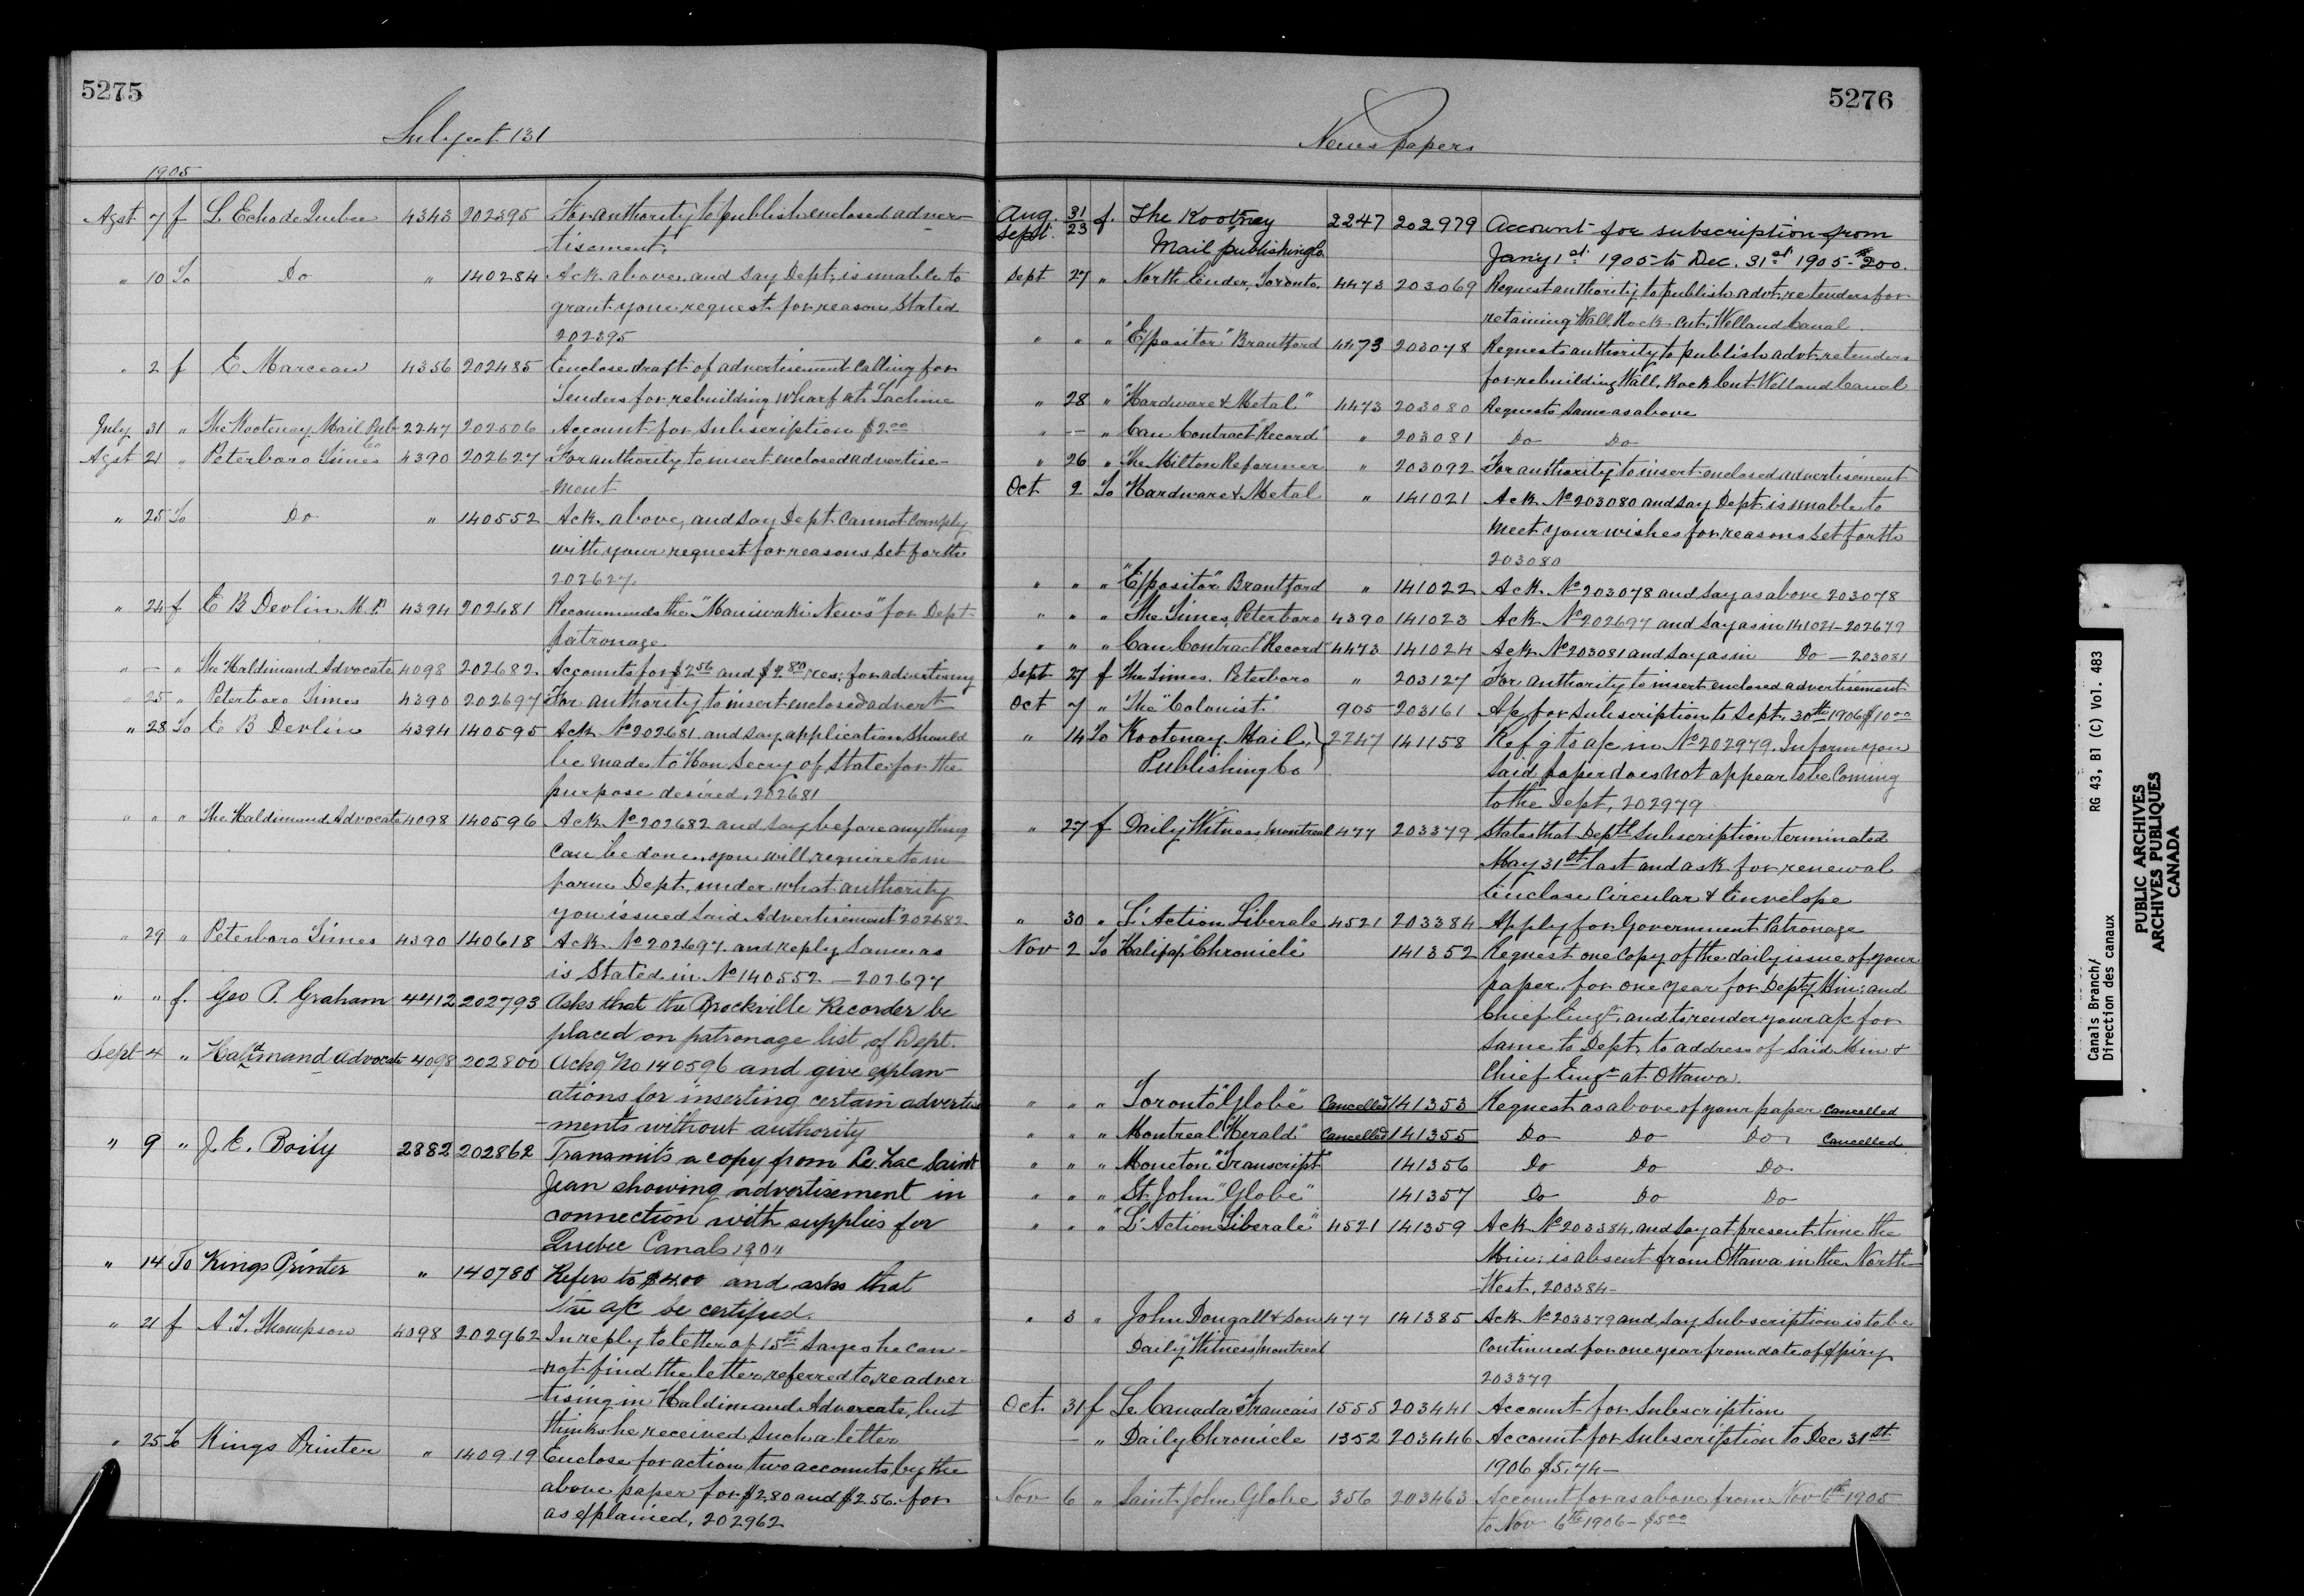 5275
Subject 131
1905
Agst 7 f L Echo de Quebec 4343 202395 For authority to publish enclosed adver-
tisement.
" 10 To Do " 140284 Ack. above, and say Dept. is unable to
grant your request for reason stated
202395
" 2 f E Marceau 4356 202485 Enclose draft of advertisement calling for
Tenders for rebuilding wharf at Lachine
July 31 " The Kootenay Mail Pub Co 2247 202506 Account for Subscription $2.00
Agst 21 " Peterboro Times 4390 202627 For authority to insert enclosed advertise-
ment
" 25 To Do " 140552 Ack. above, and say Dept. cannot comply
with your request for reasons set forth
202627.
" 24 f E B Devlin M.P. 4394 202681 Recommends the "Maniwaki News" for Dept.
patronage
" — " The Haldimand Advocate 4098 202682 Accounts for $2.56 and $2.80 res: for advertising
" 25 " Peterboro Times 4390 202697 For authority to insert enclosed advert
" 28 To E B Devlin 4394 140595 Ack No 202681 and say application should
be made to Hon Secry of State for the
purpose desired, 202681
" " " The Haldimand Advocate 4098 140596 Ack No 202682 and say before anything
can be done, you will require to in
form Dept. under what authority
you issued said Advertisement 202682
" 29 " Peterboro Times 4390 140618 Ack. No 202697 and reply same as
is stated in No 140552 — 202697
" " f. Geo P. Graham 4412 202793 Asks that the Brockville Recorder be
placed on patronage list of Dept.
Sept 4 " Haldimand Advocate 4098 202800 Ackg No 140596 and give explan-
ations for inserting certain advertise
-ments without authority
" 9 " J. E. Boily 2882 202862 Transmits a copy from Le Lac Saint
Jean showing advertisement in
connection with supplies for
Quebec Canals 1904
" 14 To Kings Printer " 140788 Refers to $4.00 and asks that
the a/c be certified.
" 21 f A. T. Thompson 4098 202962 In reply to letter of 15th says he can-
not find the letter referred to, re adver
-tising in "Haldimand Advocate, but
thinks he received such a letter
" 25 To Kings Printer " 140919 Enclose for action two accounts by the
above paper for $2.80 and $2.56. for
as explained, 202962
5276
Newspapers
Aug. 31 Sept. 23 f. The Kootnay 2247 202979 Account for subscription from
Mail publishing Co. Jan'y 1st 1905 to Dec. 31st 1905 - $2.00.
Sept 27 " North Ender, Toronto. 4473 203069 Request authority to publish advt. re tenders for
retaining Wall, Rock Cut, Welland Canal.
" " " "Expositor" Brantford 4473 203078 Requests authority to publish advt. re tenders
for rebuilding Wall, Rock Cut Welland Canal
" 28 " "Hardware & Metal" 4473 203080 Requests same as above
" — " Can Contract "Record" " 203081 Do Do
" 26 " The Milton Reformer " 203092 For authority to insert enclosed advertisement
Oct 2 To Hardware & Metal " 141021 Ack No 203080 and say Dept. is unable to
meet your wishes for reasons set forth
203080
" " " "Expositor" Brantford " 141022 Ack. No 203078 and say as above 203078
" " " The Times, Peterboro 4390 141023 Ack No 202697 and say as in 141021 - 202679
" " " Can Contract "Record" 4473 141024 Ack No 203081 and say as in Do — 203081
Sept 27 f The Times. Peterboro " 203127 For authority to insert enclosed advertisement
Oct 7 " The "Colonist" 905 203161 A/c for Subscription to Sept. 30th 1906 $10.00
" 14 To Kootenay Mail, 2247 141158 Refg to a/c in No 202979. Inform you
Publishing Co said paper does not appear to be coming
to the Dept, 202979
" 27 f Daily Witness, Montreal 477 203379 States that Depts Subscription terminated
May 31st last and ask for renewal
Enclose Circular & Envelope
" 30 " L'Action Liberale 4521 203384 Apply for Government Patronage
Nov 2 To Halifax "Chronicle" 141352 Request one copy of the daily issue of your
paper for one year for Depty Min: and
Chief Engr. and to render your a/c for
same to Dept. to address of said Min &
Chief Engr at Ottawa.
" " " Toronto "Globe" Cancelled 141353 Request as above of your paper Cancelled
" " " Montreal "Herald" Cancelled 141355 Do Do Do Cancelled
" " " Moncton "Transcript" 141356 Do Do Do
" " " St. John "Globe" 141357 Do Do Do
" " " "L'Action Liberale" 4521 141359 Ack No 203384, and say at present time the
Min: is absent from Ottawa in the North-
West, 203384-
" 3 " John Dougall & Son 477 141385 Ack No 203379 and say subscription is to be
Daily "Witness" Montreal continued for one year from date of expiry
203379
Oct. 31 f Le Canada Francais 1555 203441 Account for Subscription
— " Daily Chronicle 1352 203446 Account for Subscription to Dec 31st
1906 $5.74-
Nov 6 " Saint John Globe 356 203463 Account for as above from Nov 6th 1905
to Nov 6th 1906 - $5.00
Canals Branch/ RG 43, B1 (C) Vol. 483
Direction des canaux
PUBLIC ARCHIVES
ARCHIVES PUBLIQUES
CANADA